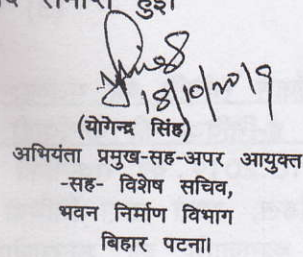 समाप्त हुई।
18/10/2019
(योगेन्द्र सिंह)
अभियंता प्रमुख-सह-अपर आयुक्त
-सह- विशेष सचिव,
भवन निर्माण विभाग
बिहार पटना।